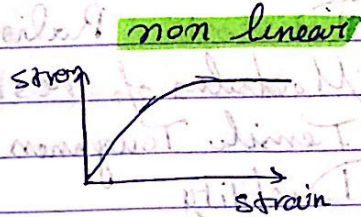 non linear
stress
strain